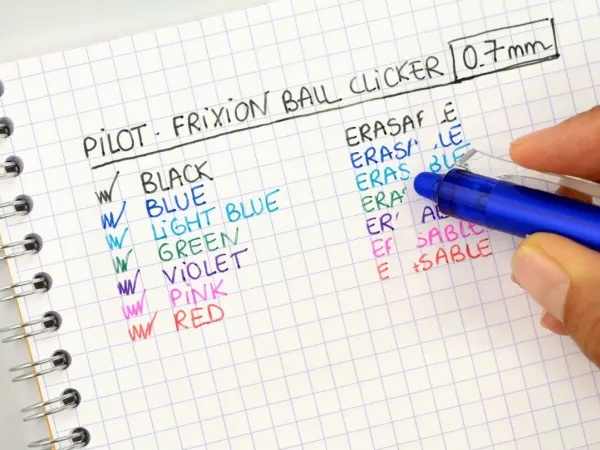 PILOT. FRIXION BALL CLICKER 0.7mm
BLACK
BLUE
LIGHT BLUE
GREEN
VIOLET
PINK
RED
ERASA E
ERAS LE
ERAS BLE
ERA
ER
E SABLE
E SABLE